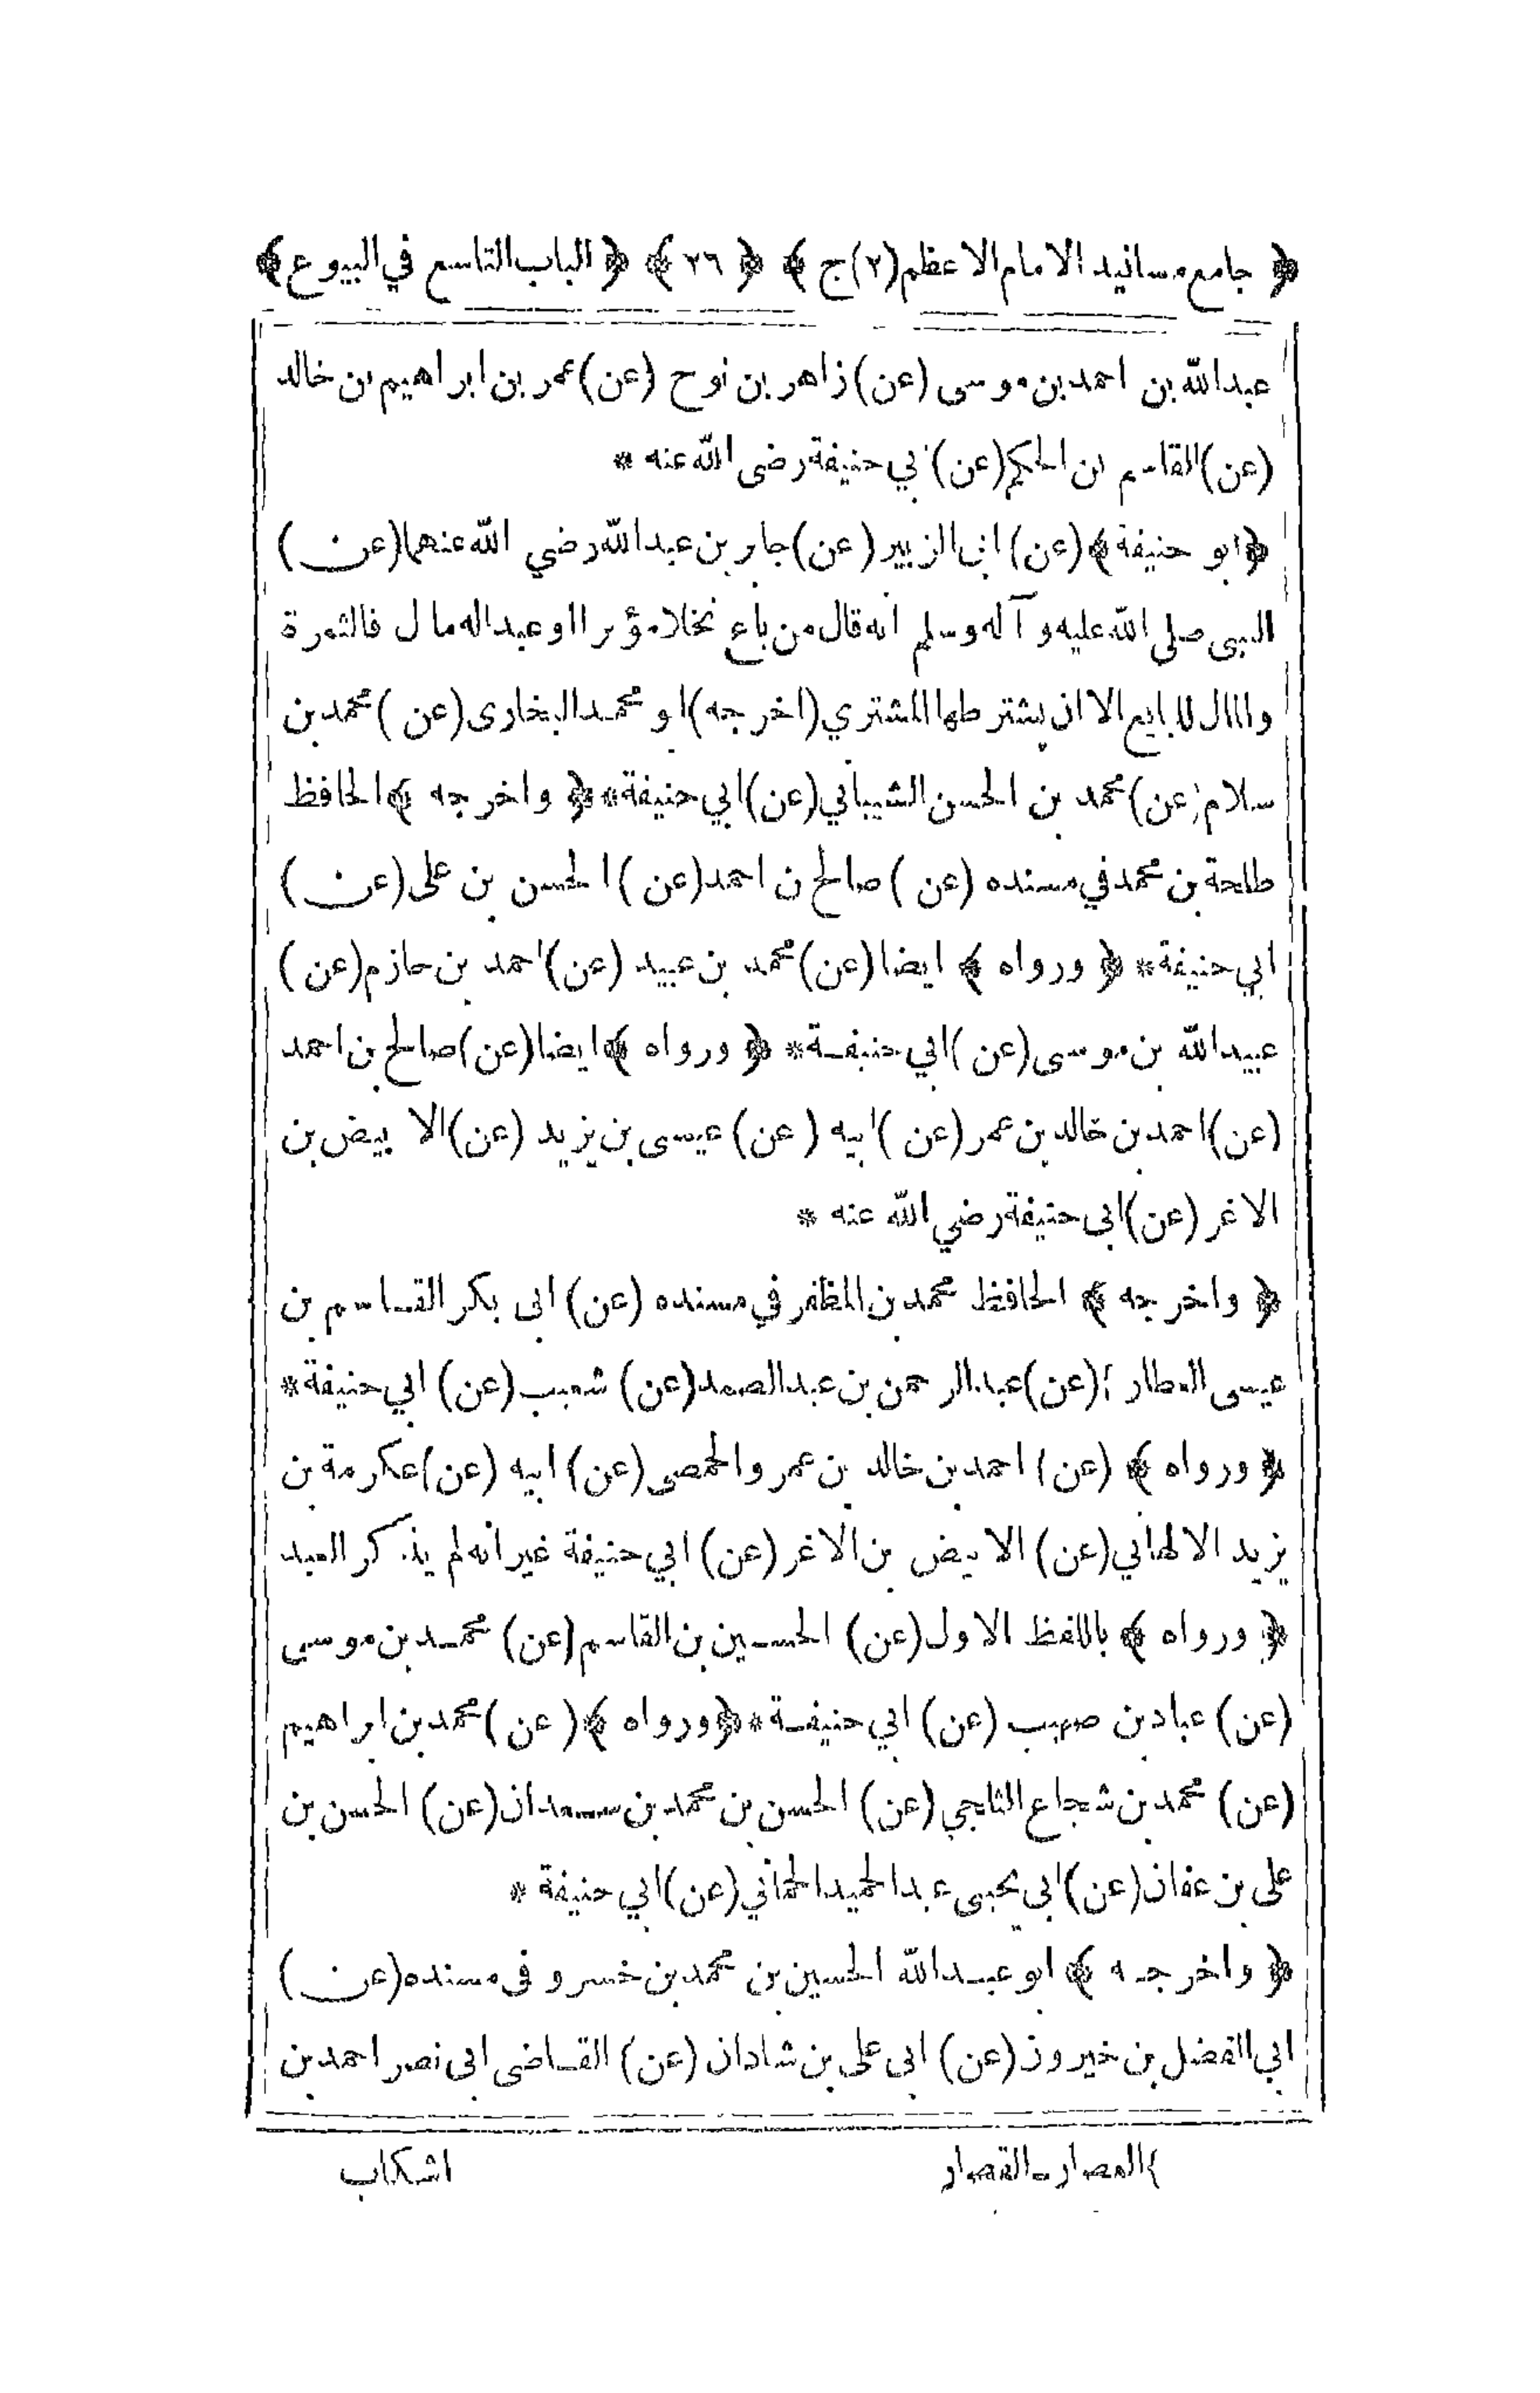 ﴿ جامع مسانيد الامام الاعظم(٢)ج ﴾ ﴿ ٢٦ ﴾ ﴿ الباب التاسع في البيوع ﴾
عبدالله بن احمد بن موسى (عن) زاهر بن نوح (عن) عمر بن ابراهيم بن خالد
(عن) القاسم بن الحكم (عن) ابي حنيفة رضى الله عنه *
﴿ ابو حنيفة ﴾ (عن) ابى الزبير (عن) جابر بن عبدالله رضي الله عنهما (عن)
النبي صلى الله عليه و آله وسلم انه قال من باع نخلا مؤبرا او عبداله مال فالثمرة
والمال للبايع الا ان يشترطها المشتري (اخرجه) ابو محمد البخارى (عن) محمد بن
سلام (عن) محمد بن الحسن الشيباني (عن) ابي حنيفة * ﴿ واخرجه ﴾ الحافظ
طلحة بن محمد في مسنده (عن) صالح بن احمد (عن) الحسن بن على (عن)
ابي حنيفة * ﴿ ورواه ﴾ ايضا (عن) محمد بن عبيد (عن) احمد بن حازم (عن)
عبيدالله بن موسى (عن) ابي حنيفة * ﴿ ورواه ﴾ ايضا (عن) صالح بن احمد
(عن) احمد بن خالد بن عمر (عن) ابيه (عن) عيسى بن يزيد (عن) الابيض بن
الاغر (عن) ابى حنيفة رضي الله عنه *
﴿ واخرجه ﴾ الحافظ محمد بن المظفر في مسنده (عن) ابى بكر القاسم بن
عيسى العطار ‎؛‎ (عن) عبدالرحمن بن عبدالصمد (عن) شعيب (عن) ابي حنيفة *
﴿ ورواه ﴾ (عن) احمد بن خالد بن عمرو الحمصى (عن) ابيه (عن) عكرمة بن
يزيد الالهاني (عن) الابيض بن الاغر (عن) ابي حنيفة غير انه لم يذكر العبد
﴿ ورواه ﴾ باللفظ الاول (عن) الحسين بن القاسم (عن) محمد بن موسى
(عن) عباد بن صهيب (عن) ابي حنيفة * ﴿ ورواه ﴾ (عن) محمد بن ابراهيم
(عن) محمد بن شجاع الثلجي (عن) الحسن بن محمد بن سعدان (عن) الحسن بن
على بن عفان (عن) ابى يحيى عبدالحميد الحماني (عن) ابي حنيفة *
﴿ واخرجه ﴾ ابو عبدالله الحسين بن محمد بن خسرو فى مسنده (عن)
ابي الفضل بن خيرون (عن) ابى على بن شاذان (عن) القاضى ابى نصر احمد بن
العصار ـ القصار
اشكاب